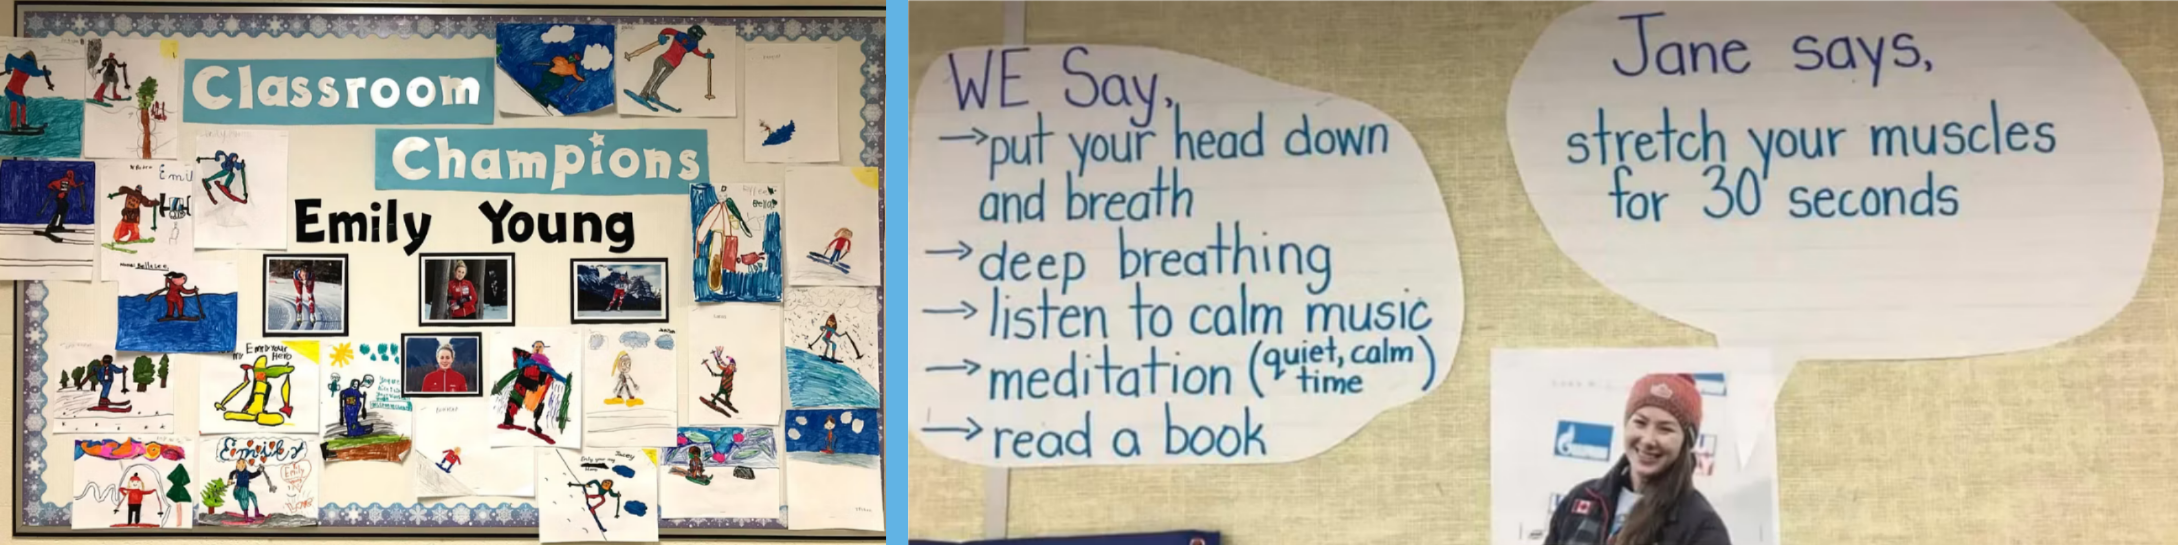 Classroom
Champions
Emily Young
Emily Your
my Hero
WE Say,
→put your head down
and breath
→deep breathing
→listen to calm music
→meditation (quiet, calm
time)
→read a book
Jane says,
stretch your muscles
for 30 seconds